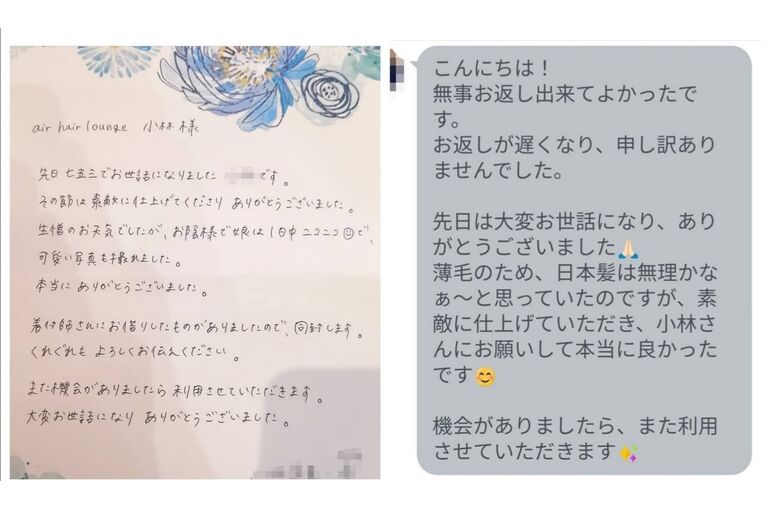 air hair lounge 小林様
先日 七五三でお世話になりました です。
その節は素敵に仕上げてくださり ありがとうございました。
生憎のお天気でしたが、お陰様で娘は1日中ニコニコ☺で、
可愛い写真も撮れました。
本当に ありがとうございました。
着付師さんにお借りしたものがありましたので、同封します。
くれぐれも よろしくお伝えください。
また機会がありましたら 利用させていただきます。
大変お世話になり ありがとうございました。
こんにちは！
無事お返し出来てよかったで
す。
お返しが遅くなり、申し訳あり
ませんでした。
先日は大変お世話になり、あり
がとうございました🙏🏻
薄毛のため、日本髪は無理かな
ぁ〜と思っていたのですが、素
敵に仕上げていただき、小林さ
んにお願いして本当に良かった
です😊
機会がありましたら、また利用
させていただきます✨